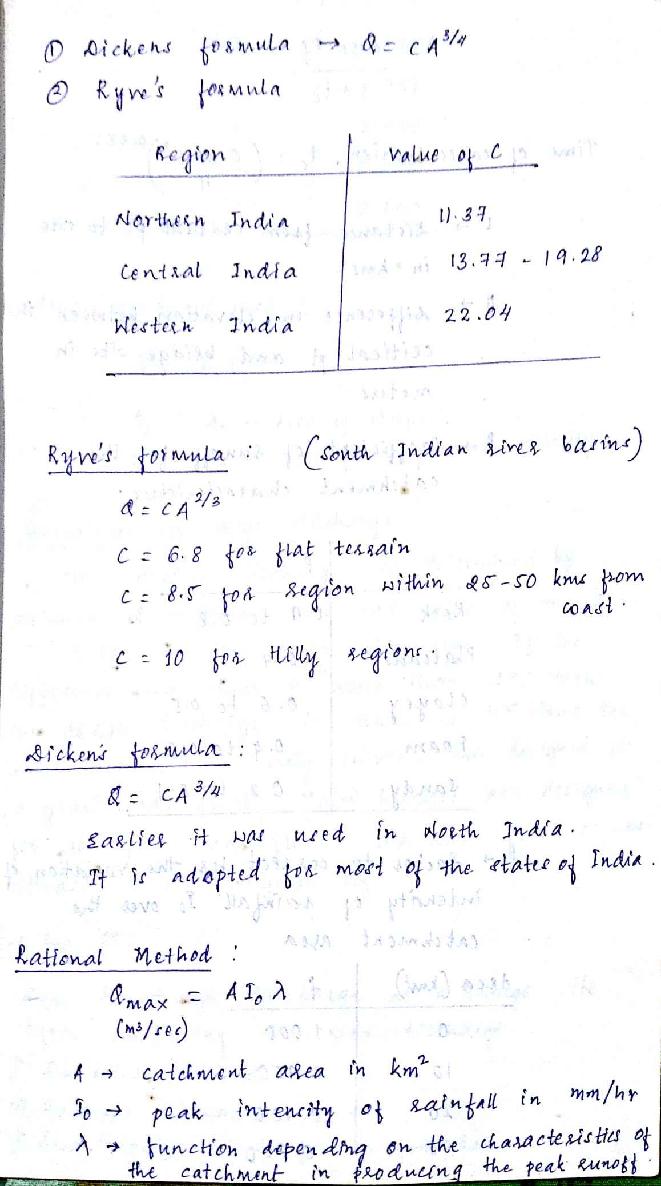 ① Dickens formula → Q = CA^3/4
② Ryve's formula
Region | Value of C
Northern India | 11.37
Central India | 13.77 - 19.28
Western India | 22.04
Ryve's formula : (South Indian river basins)
Q = CA^2/3
C = 6.8 for flat terrain
C = 8.5 for region within 25-50 kms from
coast.
C = 10 for Hilly regions.
Dicken's formula :
Q = CA^3/4
Earlier it was used in North India.
It is adopted for most of the states of India.
Rational Method :
Qmax = A I₀ λ
(m³/sec)
A → catchment area in km²
I₀ → peak intensity of rainfall in mm/hr
λ → function depending on the characteristics of
the catchment in producing the peak runoff.